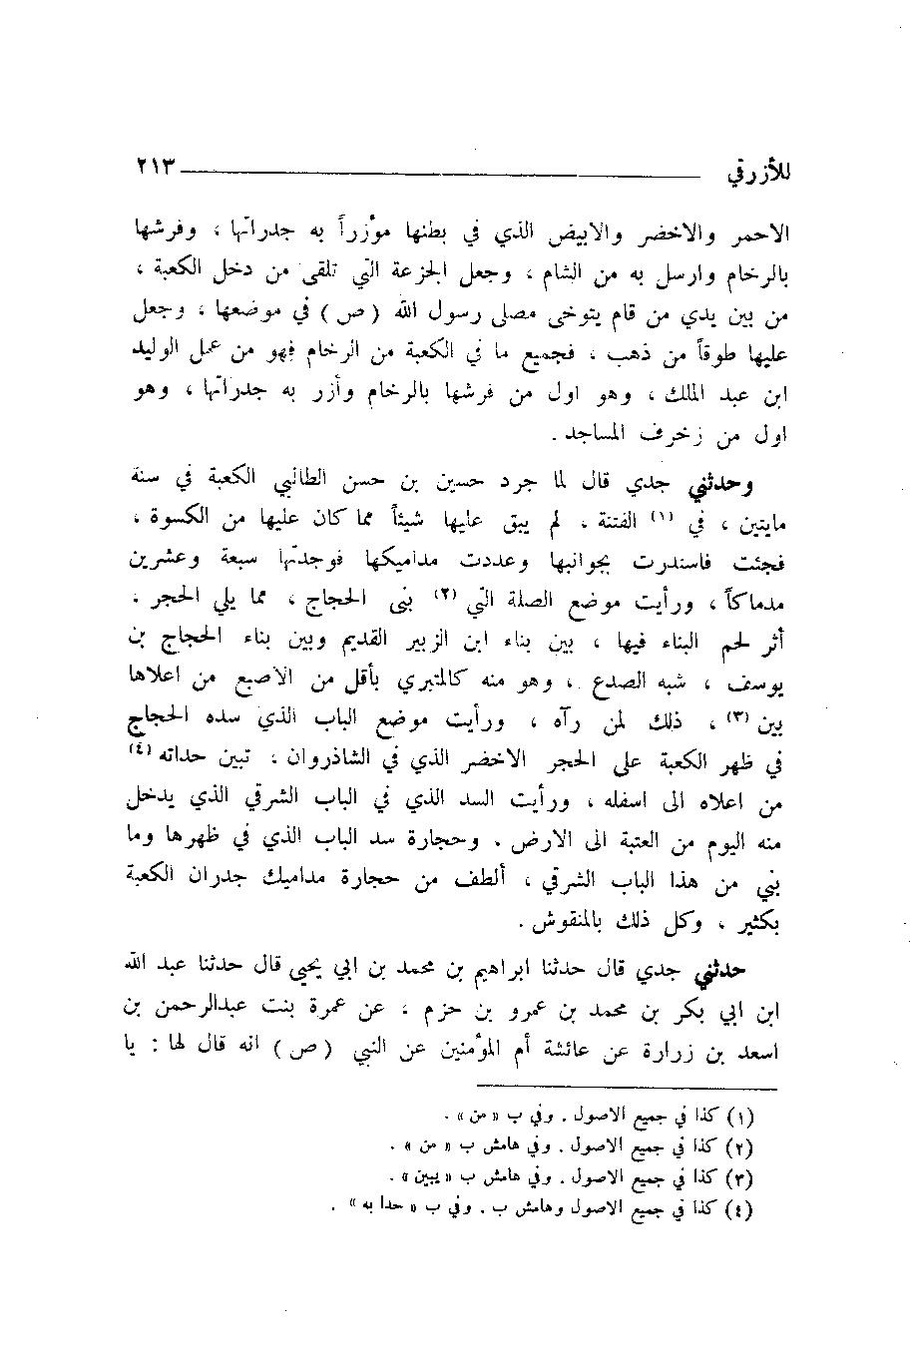 للأزرقي ٢١٣
الاحمر والاخضر والابيض الذي في بطنها موزراً به جدراتها ، وفرشها
بالرخام وارسل به من الشام ، وجعل الجزعة التي تلقى من دخل الكعبة ،
من بين يدي من قام يتوخى مصلى رسول الله ( ص ) في موضعها ، وجعل
عليها طوقاً من ذهب ، فجميع ما في الكعبة من الرخام فهو من عمل الوليد
ابن عبد الملك ، وهو اول من فرشها بالرخام وأزر به جدراتها ، وهو
اول من زخرف المساجد .
وحدثني جدي قال لما جرد حسين بن حسن الطالبي الكعبة في سنة
مايتين ، في (١) الفتنة ، لم يبق عليها شيئاً مما كان عليها من الكسوة ،
فجئت فاستدرت بجوانبها وعددت مداميكها فوجدتها سبعة وعشرين
مدماكاً ، ورأيت موضع الصلة التي (٢) بنى الحجاج ، مما يلي الحجر .
أثر لحم البناء فيها ، بين بناء ابن الزبير القديم وبين بناء الحجاج بن
يوسف ، شبه الصدع ، وهو منه كالمتبري بأقل من الاصبع من اعلاها
بين (٣) ، ذلك لمن رآه ، ورأيت موضع الباب الذي سده الحجاج
في ظهر الكعبة على الحجر الاخضر الذي في الشاذروان ، تبين حداته (٤)
من اعلاه الى اسفله ، ورأيت السد الذي في الباب الشرقي الذي يدخل
منه اليوم من العتبة الى الارض . وحجارة سد الباب الذي في ظهرها وما
بني من هذا الباب الشرقي ، ألطف من حجارة مداميك جدران الكعبة
بكثير ، وكل ذلك بالمنقوش .
حدثني جدي قال حدثنا ابراهيم بن محمد بن ابي يحيى قال حدثنا عبد الله
ابن ابي بكر بن محمد بن عمرو بن حزم ، عن عمرة بنت عبدالرحمن بن
اسعد بن زرارة عن عائشة أم المؤمنين عن النبي ( ص ) انه قال لها : يا
(١) كذا في جميع الاصول . وفي ب « من » .
(٢) كذا في جميع الاصول . وفي هامش ب « من » .
(٣) كذا في جميع الاصول . وفي هامش ب « يبين » .
(٤) كذا في جميع الاصول وهامش ب . وفي ب « حدا به » .